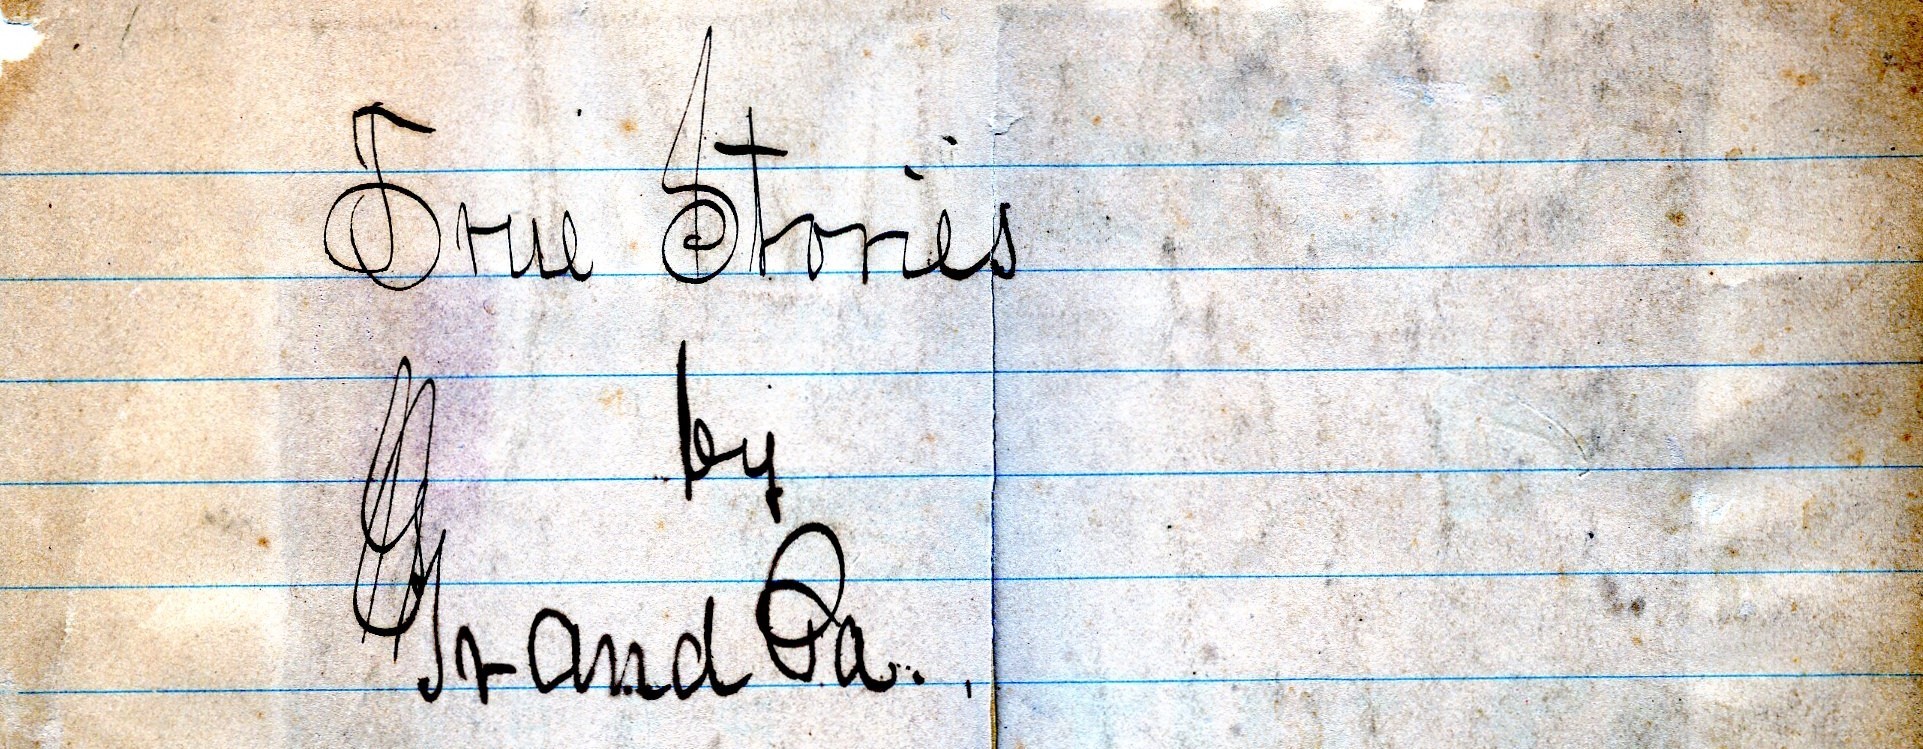 True Stories
by
Grand Pa.